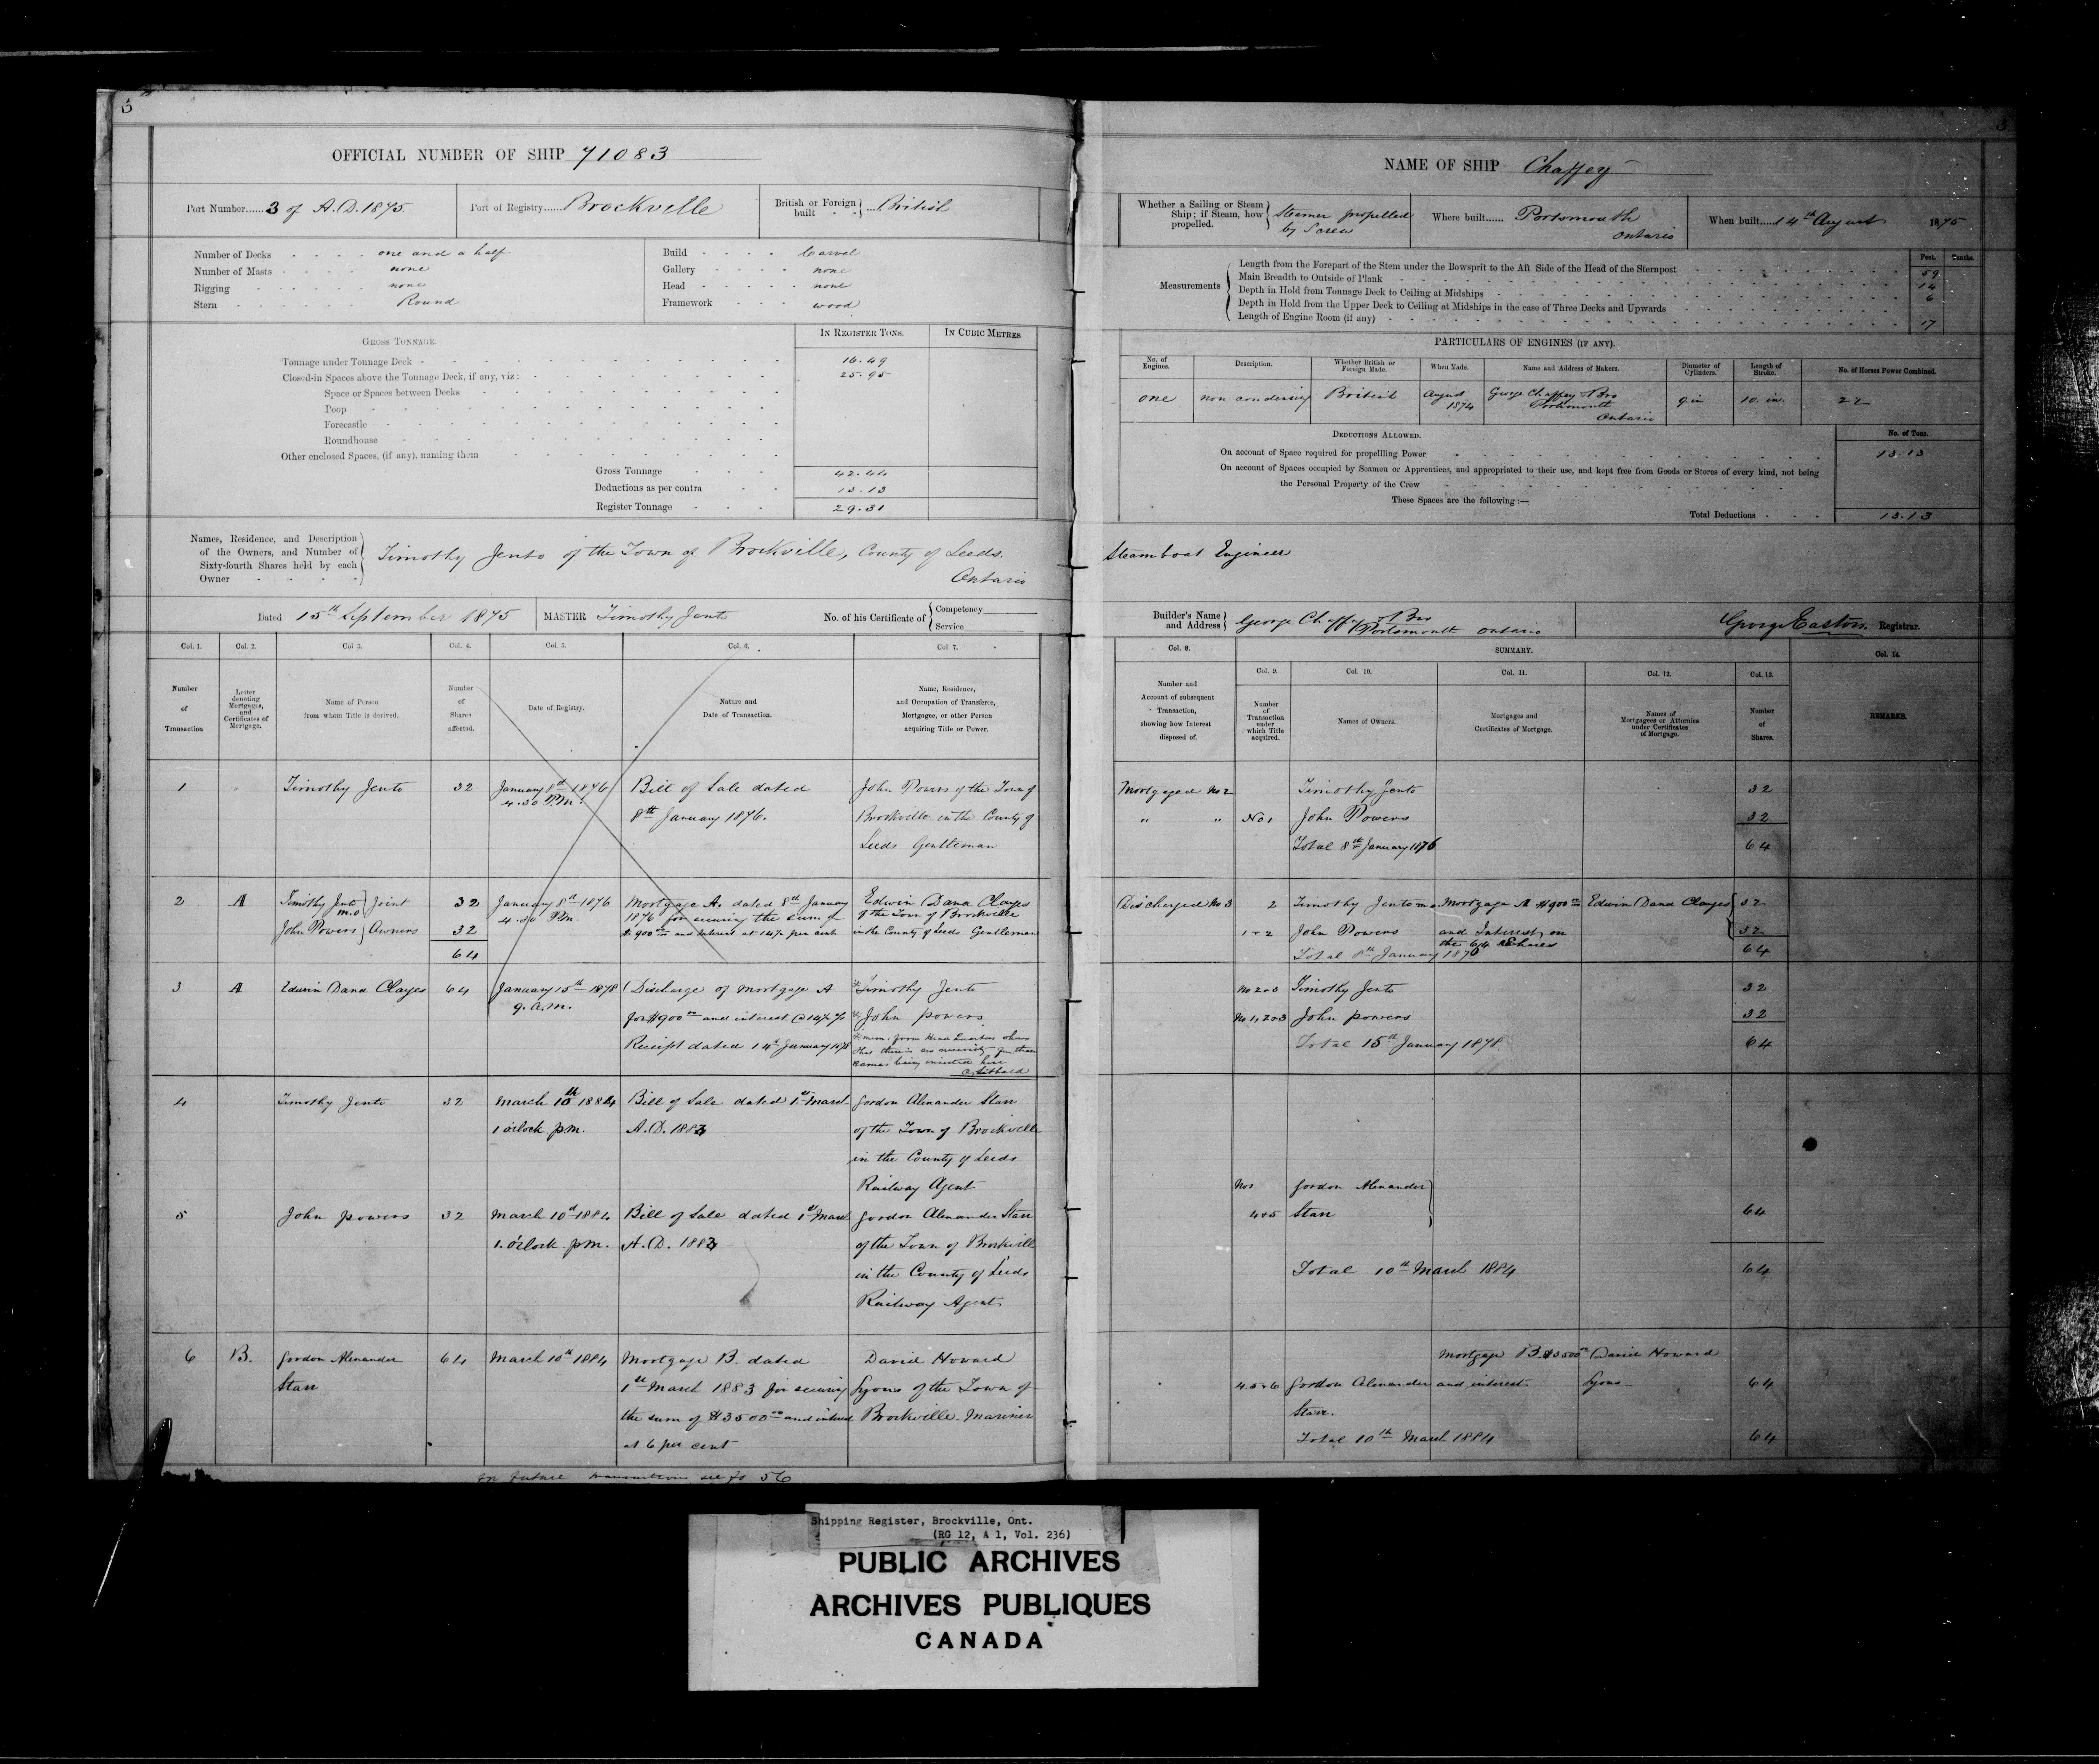 3
OFFICIAL NUMBER OF SHIP 71083
Port Number...... 3 of A.D. 1875
Port of Registry...... Brockville
British or Foreign built } ... British
Number of Decks one and a half
Number of Masts none
Rigging none
Stern Round
Build Carvel
Gallery none
Head none
Framework wood
GROSS TONNAGE.
IN REGISTER TONS.
IN CUBIC METRES
Tonnage under Tonnage Deck 16.49
Closed-in Spaces above the Tonnage Deck, if any, viz: 25.95
Space or Spaces between Decks
Poop
Forecastle
Roundhouse
Other enclosed Spaces, (if any), naming them
Gross Tonnage 42.44
Deductions as per contra 13.13
Register Tonnage 29.31
Names, Residence, and Description
of the Owners, and Number of
Sixty-fourth Shares held by each
Owner
Timothy Jento of the Town of Brockville, County of Leeds.
Ontario
Dated 15th September 1875
MASTER Timothy Jento
No. of his Certificate of { Competency
Service
Col. 1. Col. 2. Col. 3. Col. 4. Col. 5. Col. 6. Col. 7.
Number of Transaction
Letter denoting Mortgages, and Certificates of Mortgage.
Name of Person from whom Title is derived.
Number of Shares affected.
Date of Registry.
Nature and Date of Transaction.
Name, Residence, and Occupation of Transferee, Mortgagee, or other Person acquiring Title or Power.
1 Timothy Jento 32 January 8th 1876 Bill of Sale dated John Powers of the Town of
4.30 P.M. 8th January 1876. Brockville in the County of
Leeds Gentleman
2 A Timothy Jento m.o } Joint 32 January 8th 1876 Mortgage A. dated 8th January Edwin Dana Clayes
4.30 P.M. 1876 for securing the sum of of the Town of Brockville
John Powers } Owners 32 $900 00 and Interest at 14% per cent in the County of Leeds Gentleman
64
3 A Edwin Dana Clayes 64 January 15th 1878 Discharge of Mortgage A * Timothy Jento
9. A.M. for $900 00 and interest @ 14% * John Powers
Receipt dated 14th January 1878
* mem: from Head Quarters shows
that there is no necessity for these
names being inserted here
4 Timothy Jento 32 March 10th 1884 Bill of Sale dated 1st March Gordon Alexander Starr
1 o'clock p.m. A.D. 1883 of the Town of Brockville
in the County of Leeds
Railway Agent
5 John Powers 32 March 10th 1884 Bill of Sale dated 1st March Gordon Alexander Starr
1. o'clock p.m. A.D. 1883 of the Town of Brockville
in the County of Leeds
Railway Agent
6 B. Gordon Alexander 64 March 10th 1884 Mortgage B. dated David Howard
Starr 1st March 1883 for securing Lyons of the Town of
the sum of $3500 00 and interest Brockville - Mariner
at 6 per cent
for future transactions see fo 56
3
NAME OF SHIP Chaffey
Whether a Sailing or Steam
Ship; if Steam, how
propelled.
Steamer propelled
by Screw
Where built...... Portsmouth
Ontario
When built..... 14th August 1875
Feet. Tenths.
Measurements
Length from the Forepart of the Stem under the Bowsprit to the Aft Side of the Head of the Sternpost 59
Main Breadth to Outside of Plank 14
Depth in Hold from Tonnage Deck to Ceiling at Midships 6
Depth in Hold from the Upper Deck to Ceiling at Midships in the case of Three Decks and Upwards
Length of Engine Room (if any) 17
PARTICULARS OF ENGINES (IF ANY).
No. of Engines. Description. Whether British or Foreign Made. When Made. Name and Address of Makers. Diameter of Cylinders. Length of Stroke. No. of Horses Power Combined.
one non condensing British August 1874 George Chaffey & Bro Portsmouth Ontario 9 in 10. in. 22
DEDUCTIONS ALLOWED.
No. of Tons.
On account of Space required for propelling Power 13.13
On account of Spaces occupied by Seamen or Apprentices, and appropriated to their use, and kept free from Goods or Stores of every kind, not being
the Personal Property of the Crew
These Spaces are the following :—
Total Deductions 13.13
Steamboat Engineer
Builder's Name
and Address
George Chaffey & Bro
Portsmouth Ontario
George Easton. Registrar.
Col. 8. SUMMARY. Col. 14.
Col. 9. Col. 10. Col. 11. Col. 12. Col. 13.
Number and Account of subsequent Transaction, showing how Interest disposed of.
Number of Transaction under which Title acquired.
Names of Owners.
Mortgages and Certificates of Mortgage.
Names of Mortgagees or Attornies under Certificates of Mortgage.
Number of Shares.
REMARKS.
Mortgaged No 2 Timothy Jento 32
" " No 1 John Powers 32
Total 8th January 1876 64
Discharged No 3 2 Timothy Jento m.o Mortgage A $900 00 Edwin Dana Clayes 32
1 & 2 John Powers and Interest on 32
the 64 Shares
Total 8th January 1876 64
No 2 & 3 Timothy Jento 32
No 1, 2 & 3 John Powers 32
Total 15th January 1878. 64
Nos Gordon Alexander
4 & 5 Starr 64
Total 10th March 1884 64
Mortgage B. $3500 00 David Howard
4.5 & 6 Gordon Alexander and interest Lyons 64
Starr.
Total 10th March 1884 64
Shipping Register, Brockville, Ont.
(RG 12, A 1, Vol. 236)
PUBLIC ARCHIVES
ARCHIVES PUBLIQUES
CANADA